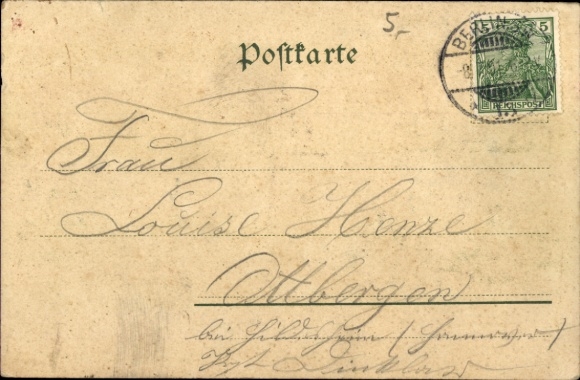 5,-
Postkarte
BERLIN
5
REICHSPOST
Frau
Louise Henze
Ottbergen
bei Hildesheim (Hannover)
Post Dinklar